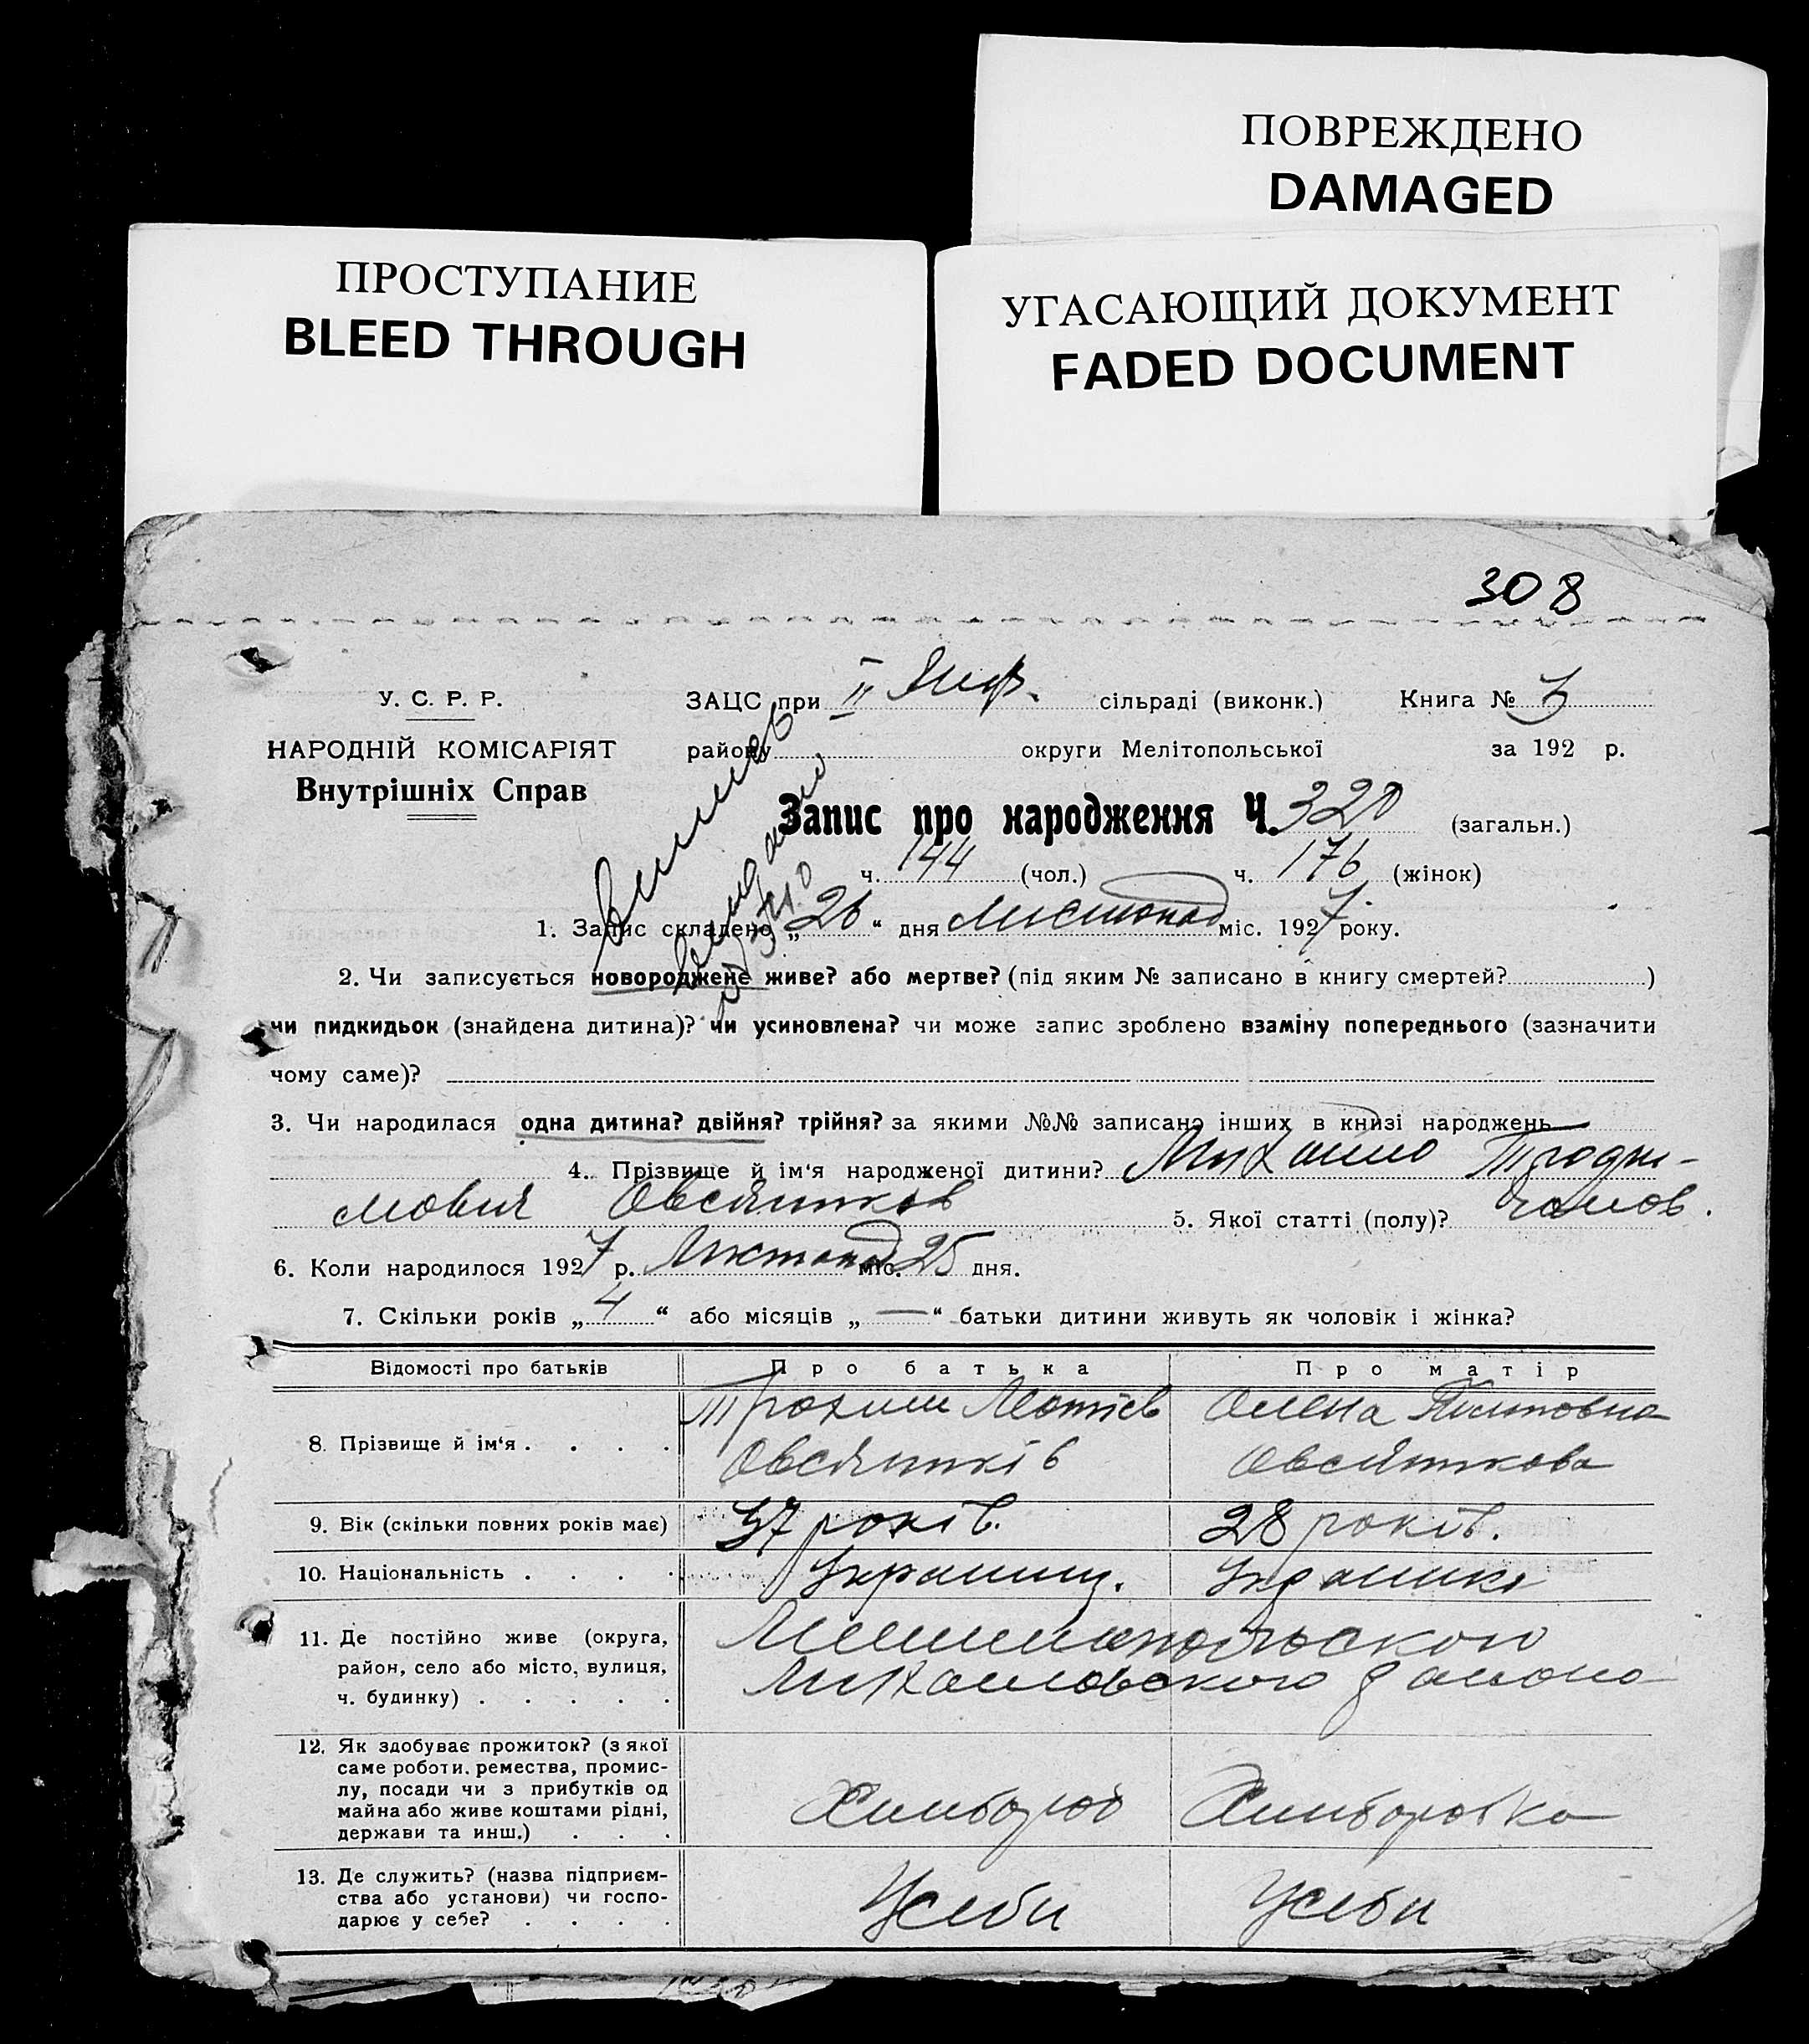 ПОВРЕЖДЕНО
DAMAGED
ПРОСТУПАНИЕ
BLEED THROUGH
УГАСАЮЩИЙ ДОКУМЕНТ
FADED DOCUMENT
308
У. С. Р. Р.
НАРОДНІЙ КОМІСАРІЯТ
Внутрішніх Справ
ЗАЦС при II сільраді (виконк.) Книга №
району округи Мелітопольської за 192 р.
Запис про народження Ч. 320 (загальн.)
ч. 144 (чол.) ч. 176 (жінок)
1. Запис складено „26“ дня Листопад міс. 1927 року.
2. Чи записується новороджене живе? або мертве? (під яким № записано в книгу смертей? )
чи пидкидьок (знайдена дитина)? чи усиновлена? чи може запис зроблено взаміну попереднього (зазначити
чому саме)?
3. Чи народилася одна дитина? двійня? трійня? за якими №№ записано інших в книзі народжень
4. Прізвище й ім‘я народженої дитини?
Овсянников 5. Якої статті (полу)?
6. Коли народилося 1927 р. Листопад міс. 25 дня.
7. Скільки років „4“ або місяців „—“ батьки дитини живуть як чоловік і жінка?
Відомості про батьків Про батька Про матір
8. Прізвище й ім‘я . . . .
Трохим Олена
Овсянників Овсянникова
9. Вік (скільки повних років має) 37 років. 28 років.
10. Національність . . . . Українц. Українка
11. Де постійно живе (округа,
район, село або місто, вулиця,
ч. будинку) . . . . .
Михайловского района
12. Як здобуває прожиток? (з якої
саме роботи, ремества, промис-
лу, посади чи з прибутків од
майна або живе коштами рідні,
держави та инш.) . . .
Хлибороб Хлиборобка
13. Де служить? (назва підприєм-
ства або установи) чи госпо-
дарює у себе? . . . .
Усеби Усеби